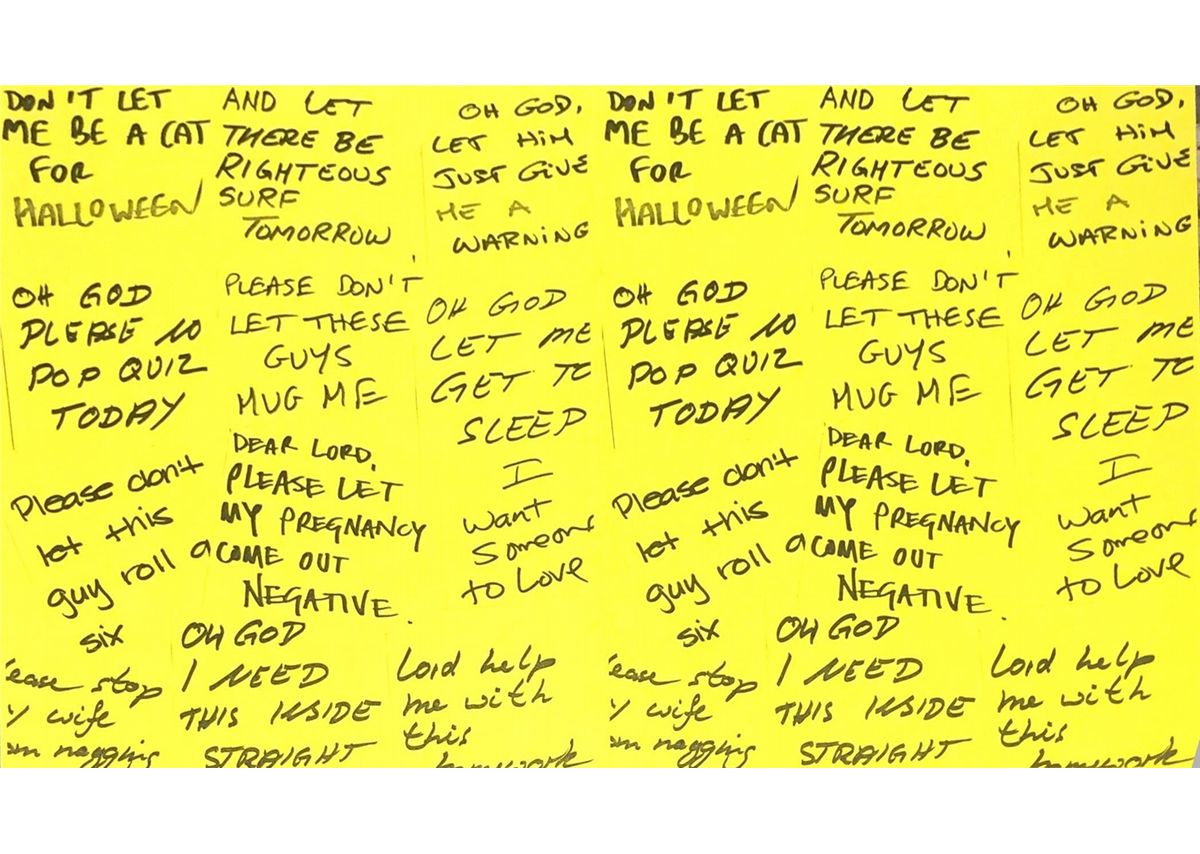 DON'T LET
ME BE A CAT
FOR
HALLOWEEN
AND LET
THERE BE
RIGHTEOUS
SURF
TOMORROW
OH GOD,
LET HIM
JUST GIVE
ME A
WARNING
OH GOD
PLEASE NO
POP QUIZ
TODAY
PLEASE DON'T
LET THESE
GUYS
MUG ME
OH GOD
LET ME
GET TO
SLEEP
Please don't
let this
guy roll a
six
DEAR LORD,
PLEASE LET
MY PREGNANCY
COME OUT
NEGATIVE.
I
want
Someon
to Love
ease stop
y wife
om nagging
OH GOD
I NEED
THIS INSIDE
STRAIGHT
Lord help
me with
this
homework
DON'T LET
ME BE A CAT
FOR
HALLOWEEN
AND LET
THERE BE
RIGHTEOUS
SURF
TOMORROW
OH GOD,
LET HIM
JUST GIVE
ME A
WARNING
OH GOD
PLEASE NO
POP QUIZ
TODAY
PLEASE DON'T
LET THESE
GUYS
MUG ME
OH GOD
LET ME
GET TO
SLEEP
Please don't
let this
guy roll a
six
DEAR LORD,
PLEASE LET
MY PREGNANCY
COME OUT
NEGATIVE.
I
want
Someon
to Love
ease stop
y wife
om nagging
OH GOD
I NEED
THIS INSIDE
STRAIGHT
Lord help
me with
this
homework